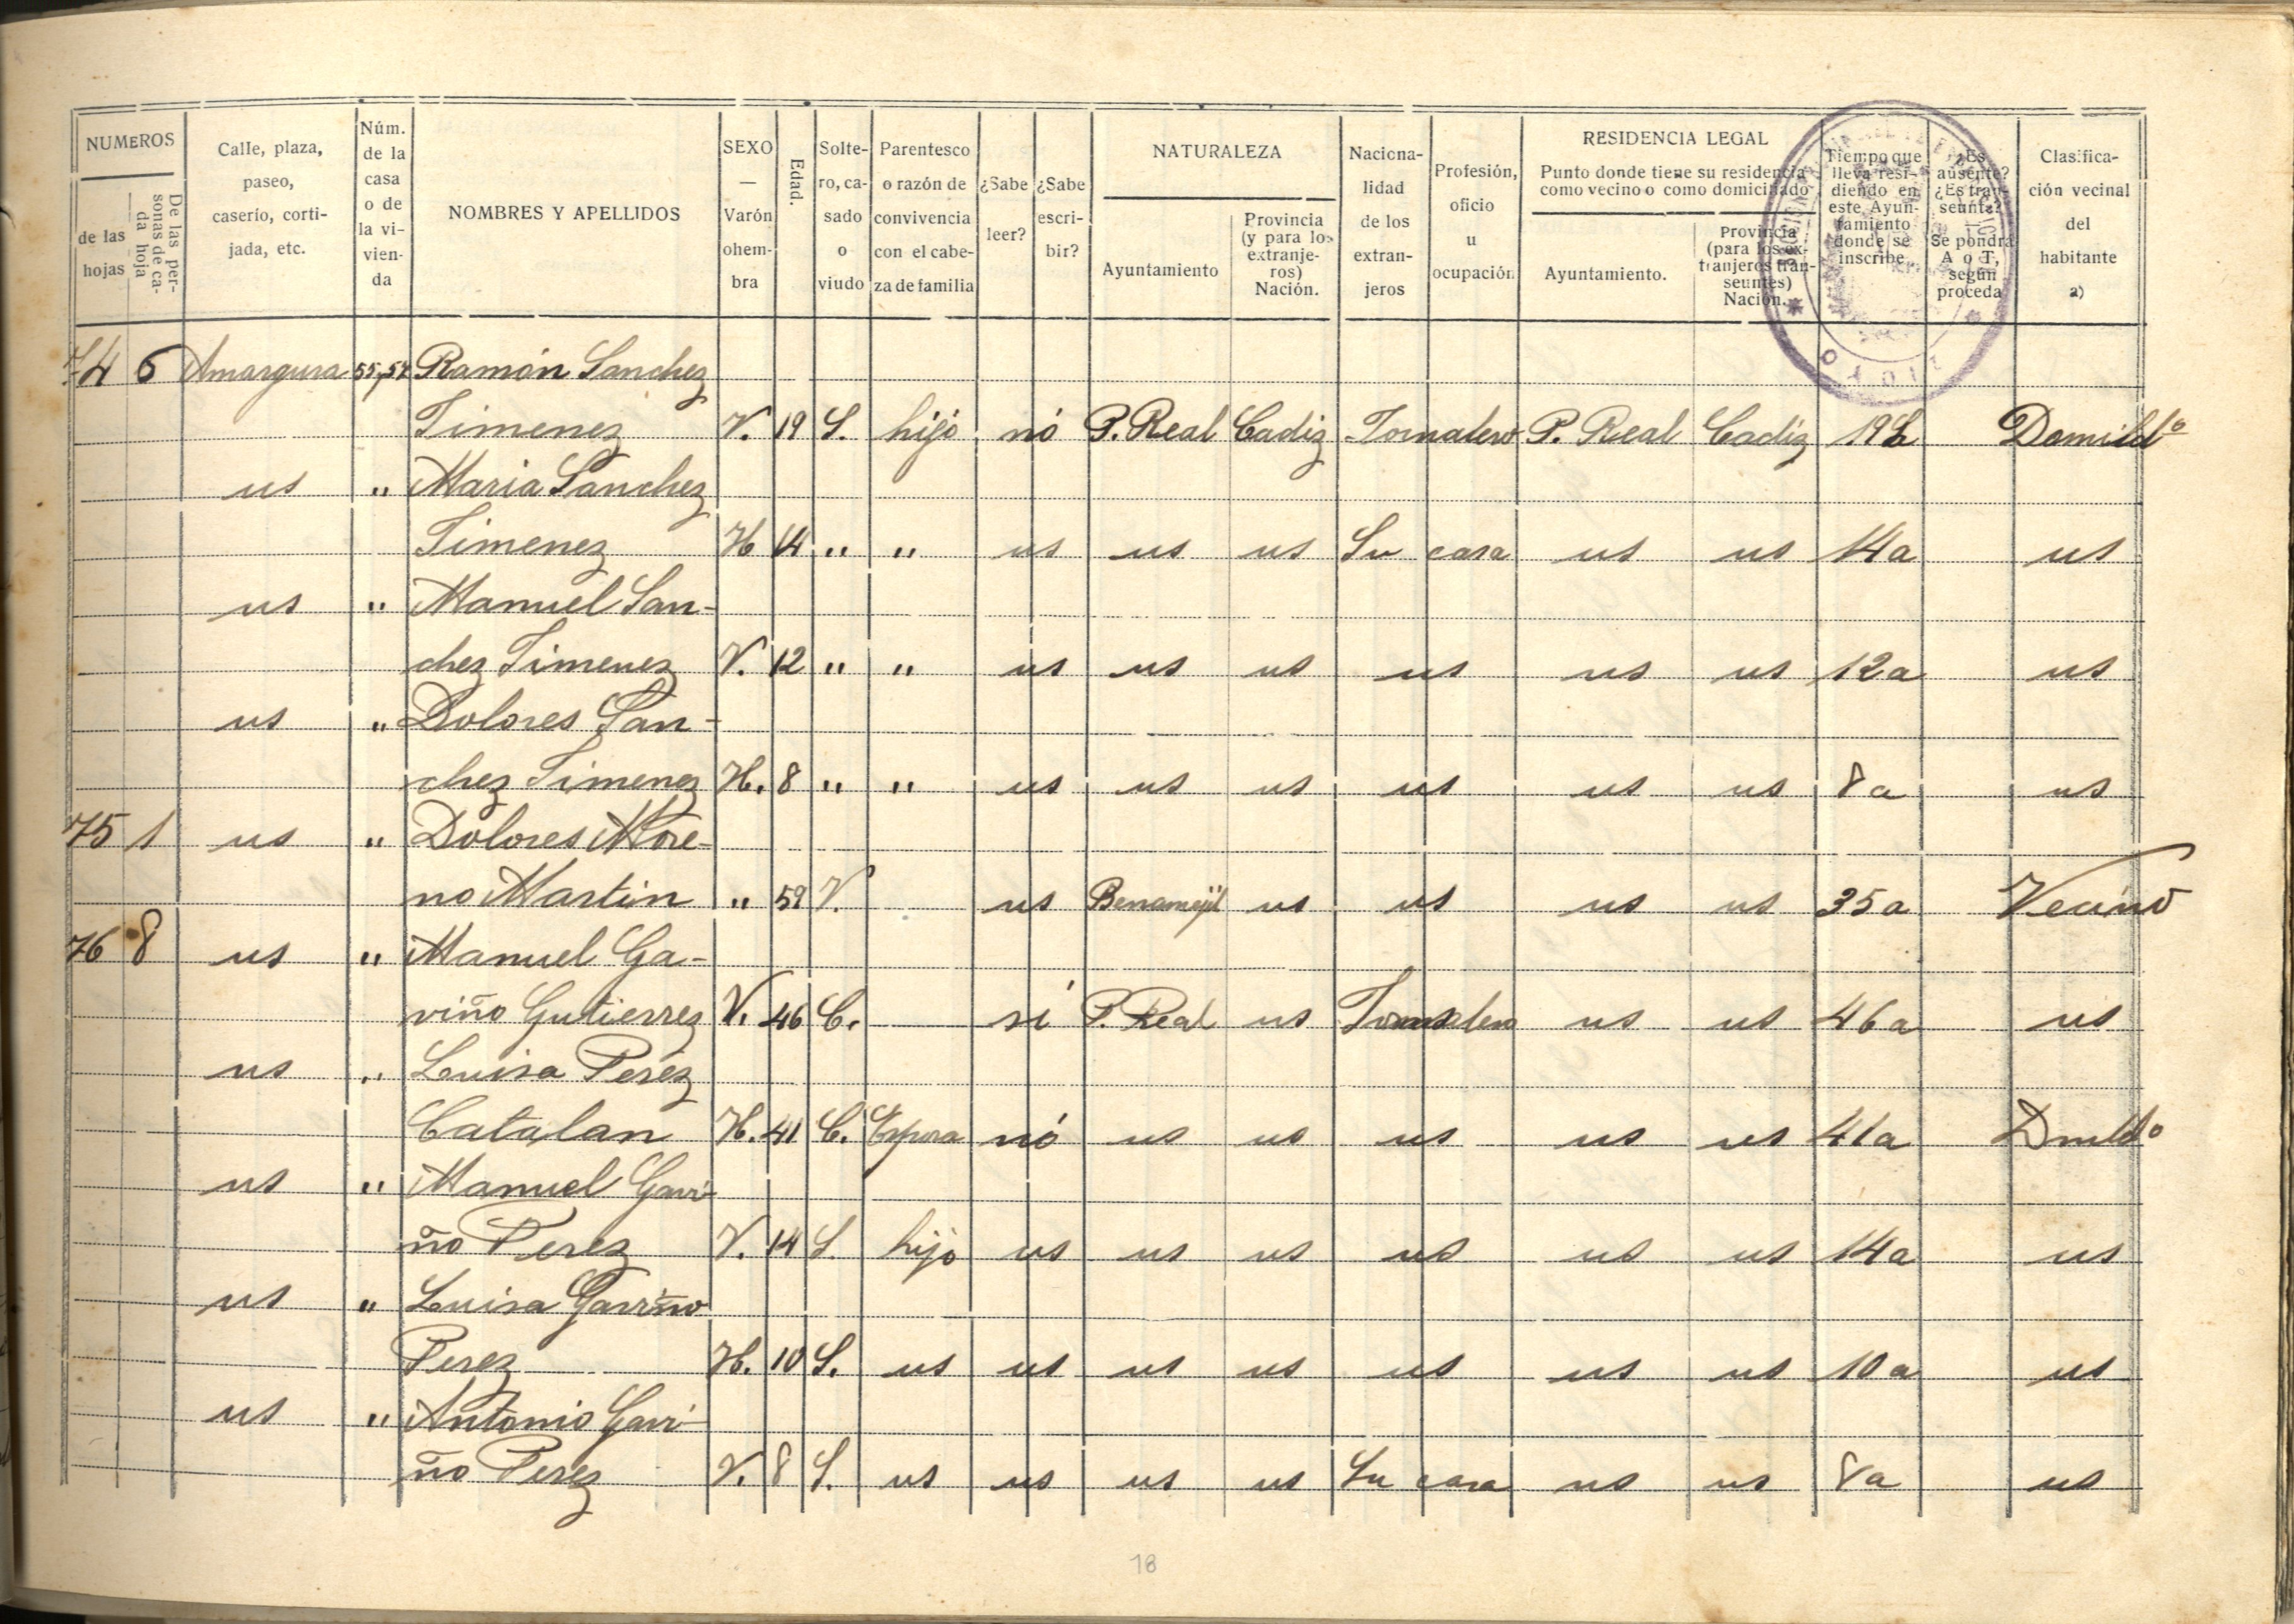 NUMEROS
de las hojas
De las personas de cada hoja
Calle, plaza, paseo, caserío, cortijada, etc.
Núm. de la casa o de la vivienda
NOMBRES Y APELLIDOS
SEXO — Varón o hembra
Edad.
Soltero, casado o viudo
Parentesco o razón de convivencia con el cabeza de familia
¿Sabe leer?
¿Sabe escribir?
NATURALEZA
Ayuntamiento
Provincia (y para los extranjeros) Nación.
Nacionalidad de los extranjeros
Profesión, oficio u ocupación
RESIDENCIA LEGAL
Punto donde tiene su residencia como vecino o como domiciliado
Ayuntamiento.
Provincia (para los extranjeros transeuntes) Nación.
Tiempo que lleva residiendo en este Ayuntamiento donde se inscribe.
¿Es ausente? ¿Es transeunte? Se pondrá A o T, según proceda
Clasificación vecinal del habitante a)
74 6 Amargura 55,57 Ramón Sanchez
Jimenez V. 19 S. hijo nó P. Real Cadiz Jornalero P. Real Cadiz 19 Domildº
us " Maria Sanchez
Jimenez H 14 " " us us us Su casa us us 14a us
us " Manuel San-
chez Jimenez V. 12 " " us us us us us us 12a us
us " Dolores San-
chez Jimenez H. 8 " " us us us us us us 8a us
75 1 us " Dolores More-
no Martin " 59 V. us Benamejil us us us us 35a Vecino
76 8 us " Manuel Ga-
viño Gutierrez V. 46 C. sí P. Real us Jornalero us us 46a us
us " Luisa Peréz
Catalan H. 41 C. Esposa nó us us us us us 41a Dmildº
us " Manuel Gavi-
ño Perez V. 14 S. hijo us us us us us us 14a us
us " Luisa Gaviño
Perez H. 10 S. us us us us us us us 10a us
us " Antonio Gavi-
ño Perez V. 8 S. us us us us Su casa us us 8a us
18